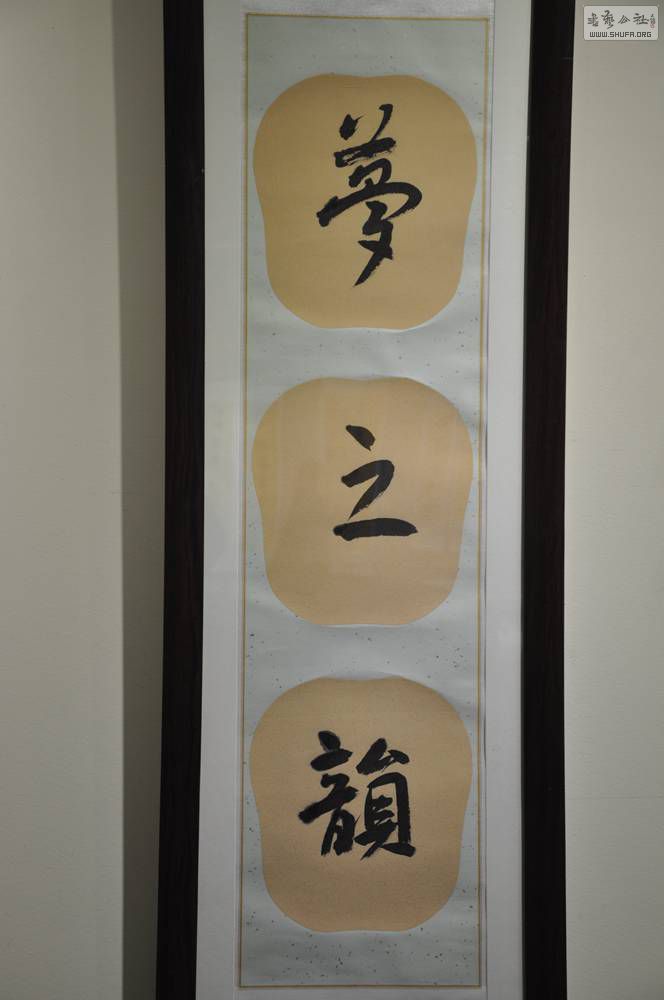 夢
之
韻
书艺公社
WWW.SHUFA.ORG